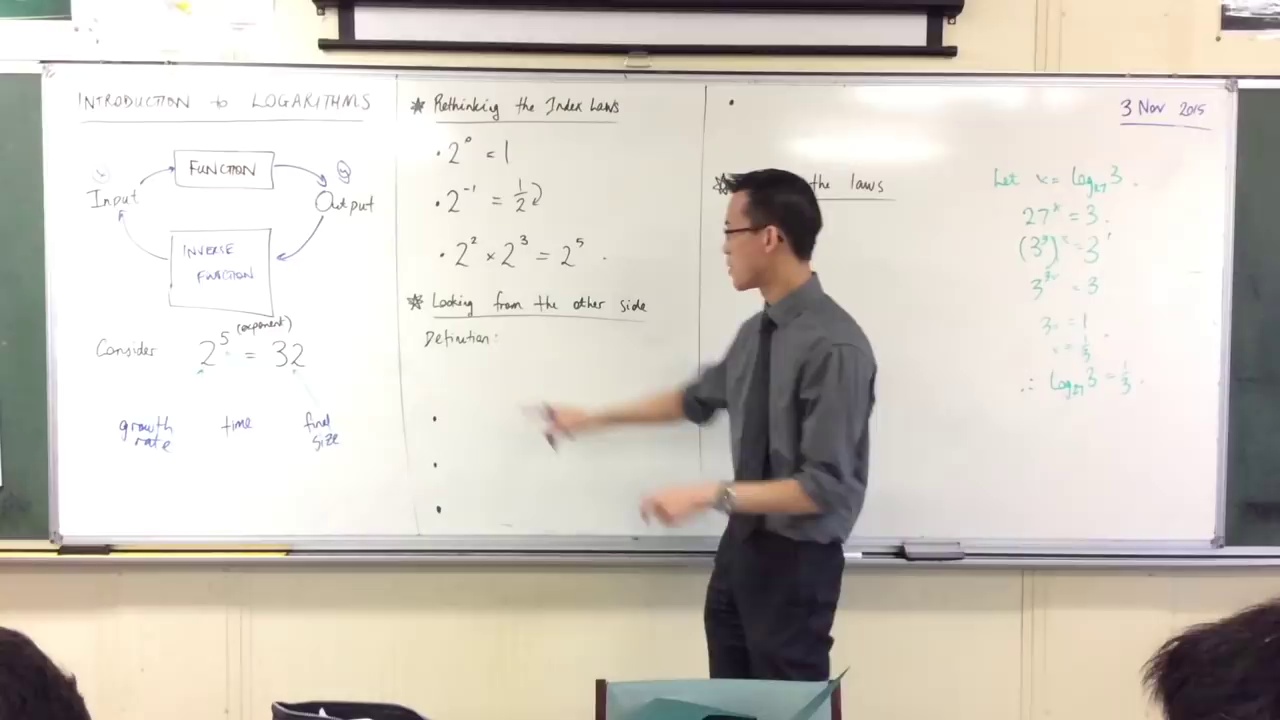 INTRODUCTION to LOGARITHMS
FUNCTION
Input
Output
INVERSE
FUNCTION
(exponent)
Consider 2⁵ = 32
growth rate
time
final size
* Rethinking the Index Laws
• 2⁰ = 1
• 2⁻¹ = 1/2
• 2² × 2³ = 2⁵
* Looking from the other side
Definition:
the laws
3 Nov 2015
Let x = log₂₇3.
27ˣ = 3.
(3³)ˣ = 3¹
3³ˣ = 3
3x = 1
x = 1/3
∴ log₂₇3 = 1/3.